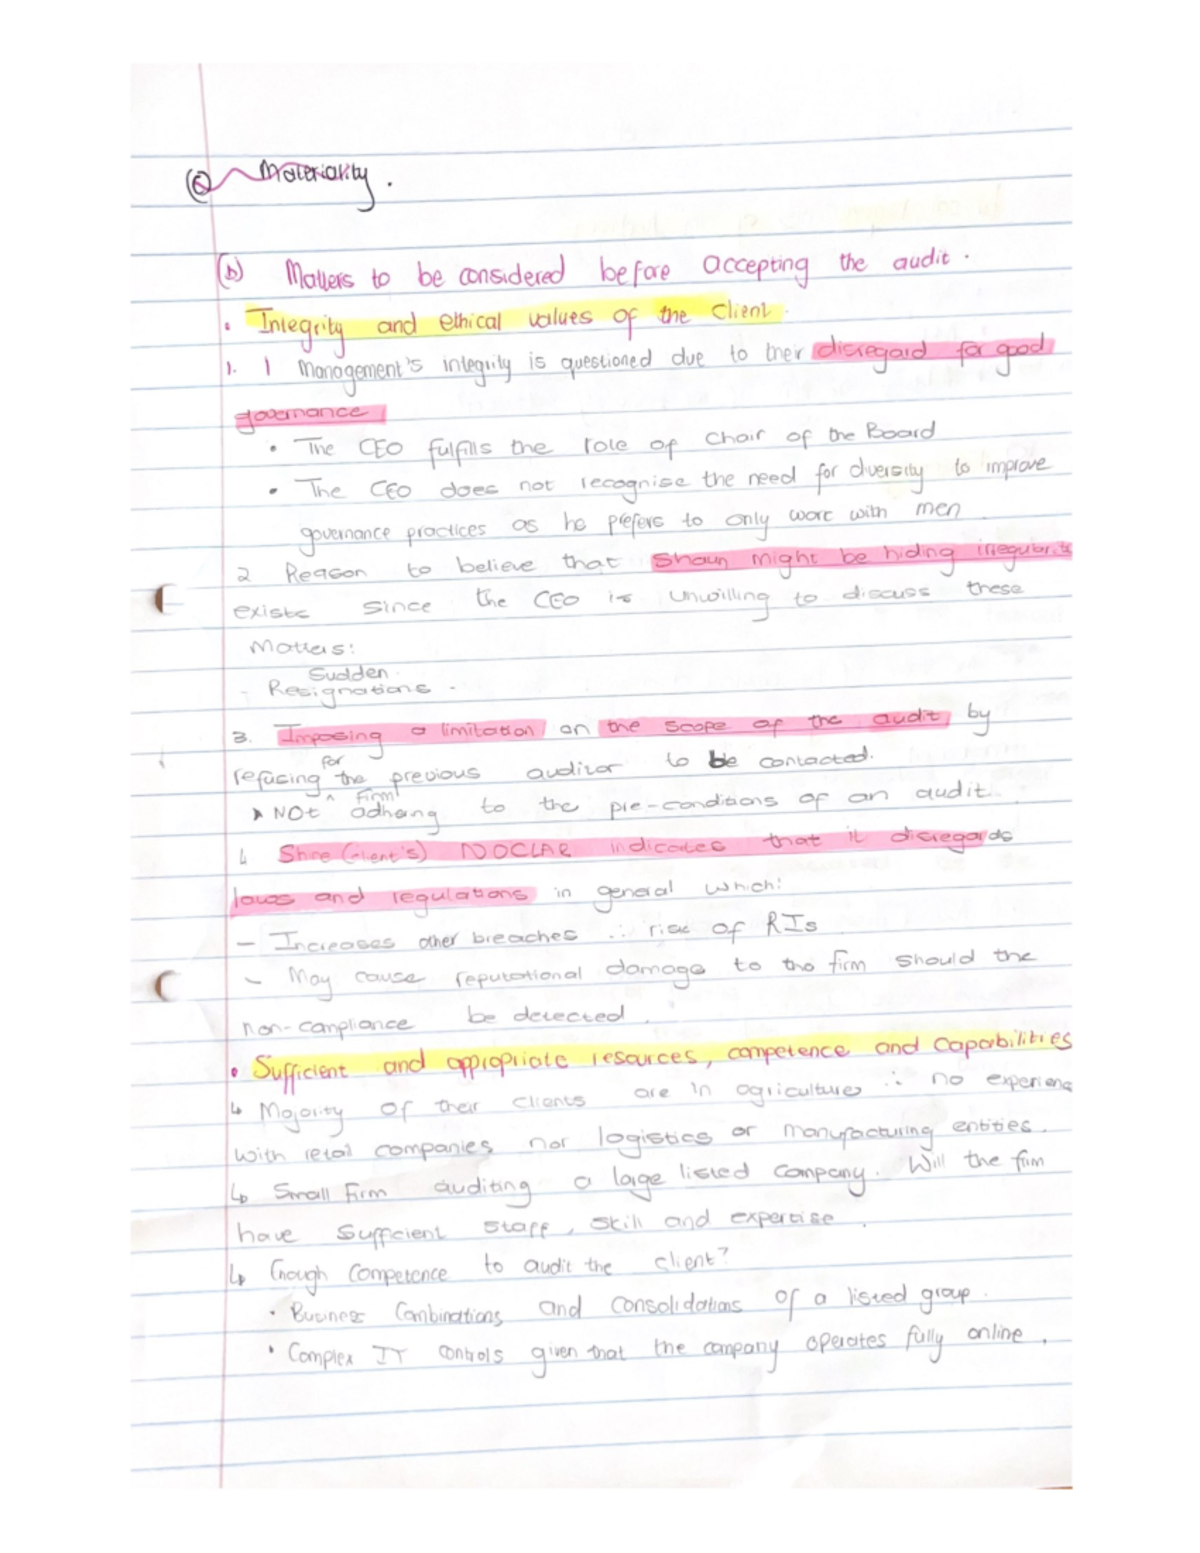 (c) Materiality.
(b) Matters to be considered before accepting the audit.
• Integrity and ethical values of the client.
1. 1 Management's integrity is questioned due to their disregard for good
governance
• The CEO fulfills the role of Chair of the Board
• The CEO does not recognise the need for diversity to improve
governance practices as he prefers to only work with men.
2 Reason to believe that Shaun might be hiding
exists since the CEO is unwilling to discuss these
Matters:
Sudden
- Resignations -
3. Imposing a limitation on the scope of the audit by
refusing for the previous auditor to be contacted.
firm
NOt adhering to the pre-conditions of an audit.
Shire (client's) NOCLAR indicates that it disregards
laws and regulations in general which:
- Increases other breaches ∴ risk of RIs
- May cause reputational damage to the firm should the
non-compliance be detected.
• Sufficient and appropriate resources, competence and capabilities
↳ Majority of their clients are in agriculture ∴ no experienc
with retail companies nor logistics or manufacturing entities.
↳ Small firm auditing a large listed company. Will the firm
have sufficient staff, skill and expertise.
↳ Enough Competence to audit the client?
• Business Combinations and Consolidations of a listed group.
• Complex IT controls given that the company operates fully online.